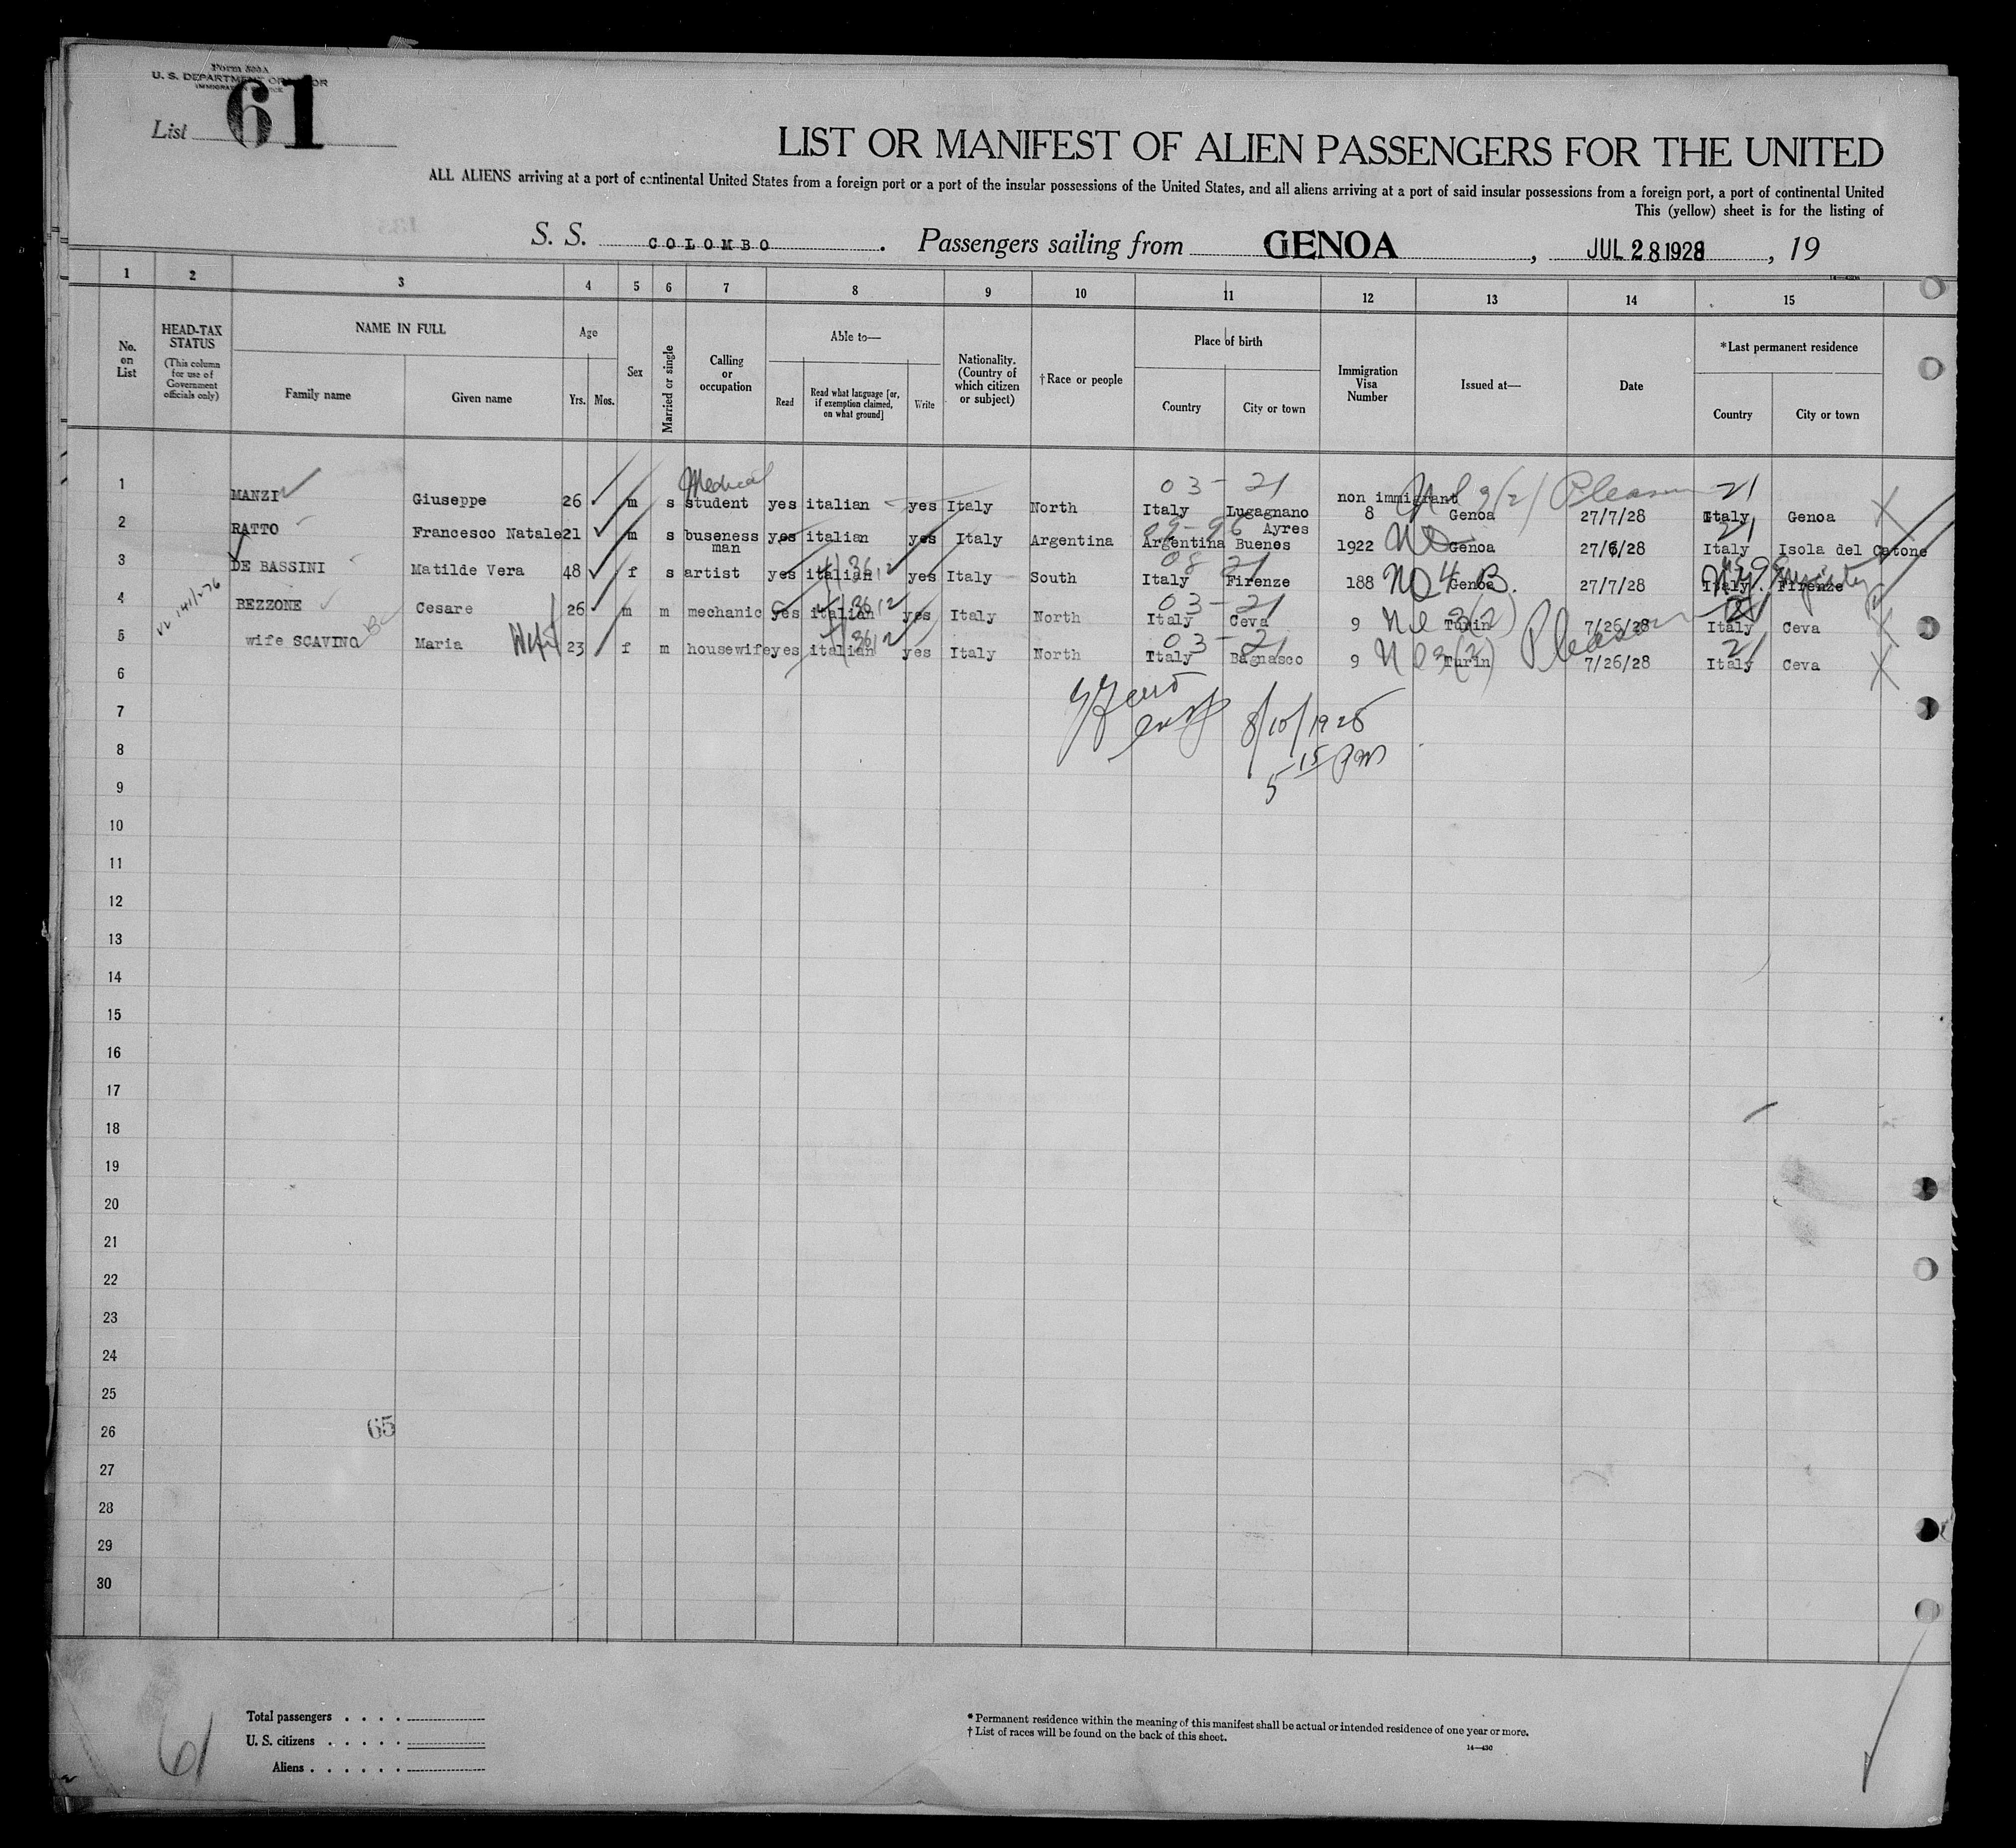 Form 500A
U. S. DEPARTMENT OF LABOR
IMMIGRATION SERVICE
List 61
LIST OR MANIFEST OF ALIEN PASSENGERS FOR THE UNITED
ALL ALIENS arriving at a port of continental United States from a foreign port or a port of the insular possessions of the United States, and all aliens arriving at a port of said insular possessions from a foreign port, a port of continental United
This (yellow) sheet is for the listing of
S. S. COLOMBO . Passengers sailing from GENOA , JUL 28 1928 , 19
1 2 3 4 5 6 7 8 9 10 11 12 13 14 15
No. on List
HEAD-TAX STATUS
(This column for use of Government officials only)
NAME IN FULL
Family name
Given name
Age
Yrs.
Mos.
Sex
Married or single
Calling or occupation
Able to—
Read
Read what language [or, if exemption claimed, on what ground]
Write
Nationality. (Country of which citizen or subject)
†Race or people
Place of birth
Country
City or town
Immigration Visa Number
Issued at—
Date
*Last permanent residence
Country
City or town
Medical 03 - 21 Pleasure 21
1 MANZI Giuseppe 26 m s student yes italian yes Italy North Italy Lugagnano non immigrant 8 Genoa 27/7/28 Italy Genoa
2 RATTO Francesco Natale 21 m s buseness man yes italian yes Italy Argentina Argentina Buenos Ayres 1922 Genoa 27/6/28 Italy Isola del Catone
3 DE BASSINI Matilde Vera 48 f s artist yes italian yes Italy South Italy Firenze 188 Genoa 27/7/28 Italy Firenze
4 BEZZONE Cesare 26 m m mechanic yes italian yes Italy North Italy Ceva 9 Turin 7/26/28 Italy Ceva
5 wife SCAVINO Maria Wife 23 f m housewife yes italian yes Italy North Italy Bagnasco 9 Turin 7/26/28 Italy Ceva
Pleasure
6
7
8/10/1928
8
5 15 PM
9
10
11
12
13
14
15
16
17
18
19
20
21
22
23
24
25
26
65
27
28
29
30
61
Total passengers . . . .
U. S. citizens . . . . .
Aliens . . . . . .
* Permanent residence within the meaning of this manifest shall be actual or intended residence of one year or more.
† List of races will be found on the back of this sheet.
14—430